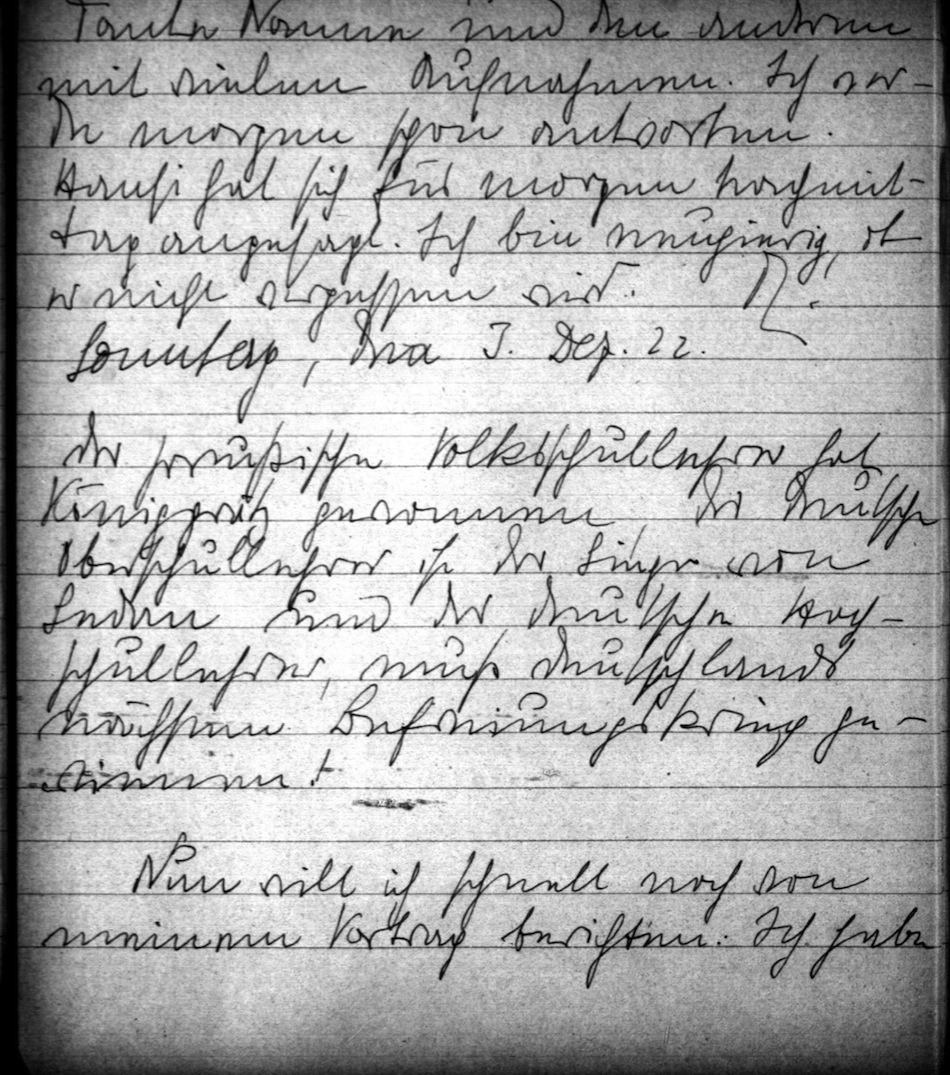 Tante Nanna und den anderen
mit vielen Aufnahmen. Ich wer-
de morgen schon antworten.
Hansi hat sich für morgen Nachmit-
tag angesagt. Ich bin neugierig, ob
er nicht vergessen wird.
Sonntag, den 3. Dez. 22.
Der preußische Volksschullehrer hat
Königgrätz gewonnen, der deutsche
Oberschullehrer ist der Sieger von
Sedan und der deutsche Hoch-
schullehrer, muß Deutschlands
nächsten Befreiungskrieg ge-
winnen!
Nun will ich schnell noch von
meinem Vortrag berichten. Ich habe